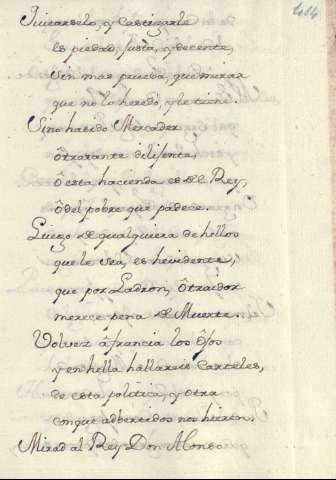 484
Quitarselo, y Castigarle
es piedad, justa, y decente,
sin mas prueba, que mirar
que no lo heredó, y le tiene.
Sino ha sido Mercader
ô tratante dilijente,
ô esta hacienda es del Rey,
ô del pobre que padece.
Luego de qualquiera de hellos
que le sea, es hevidente,
que por Ladron, ô traidor
merece pena de Muerte.
Volvez â francia los ôjos
y en hella hallareis carteles,
de esta politica, y otra
conque adbertidos nos hieren.
Mirad al Rey Don Alonso